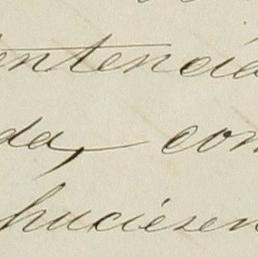 entencia
da, con
huciesen